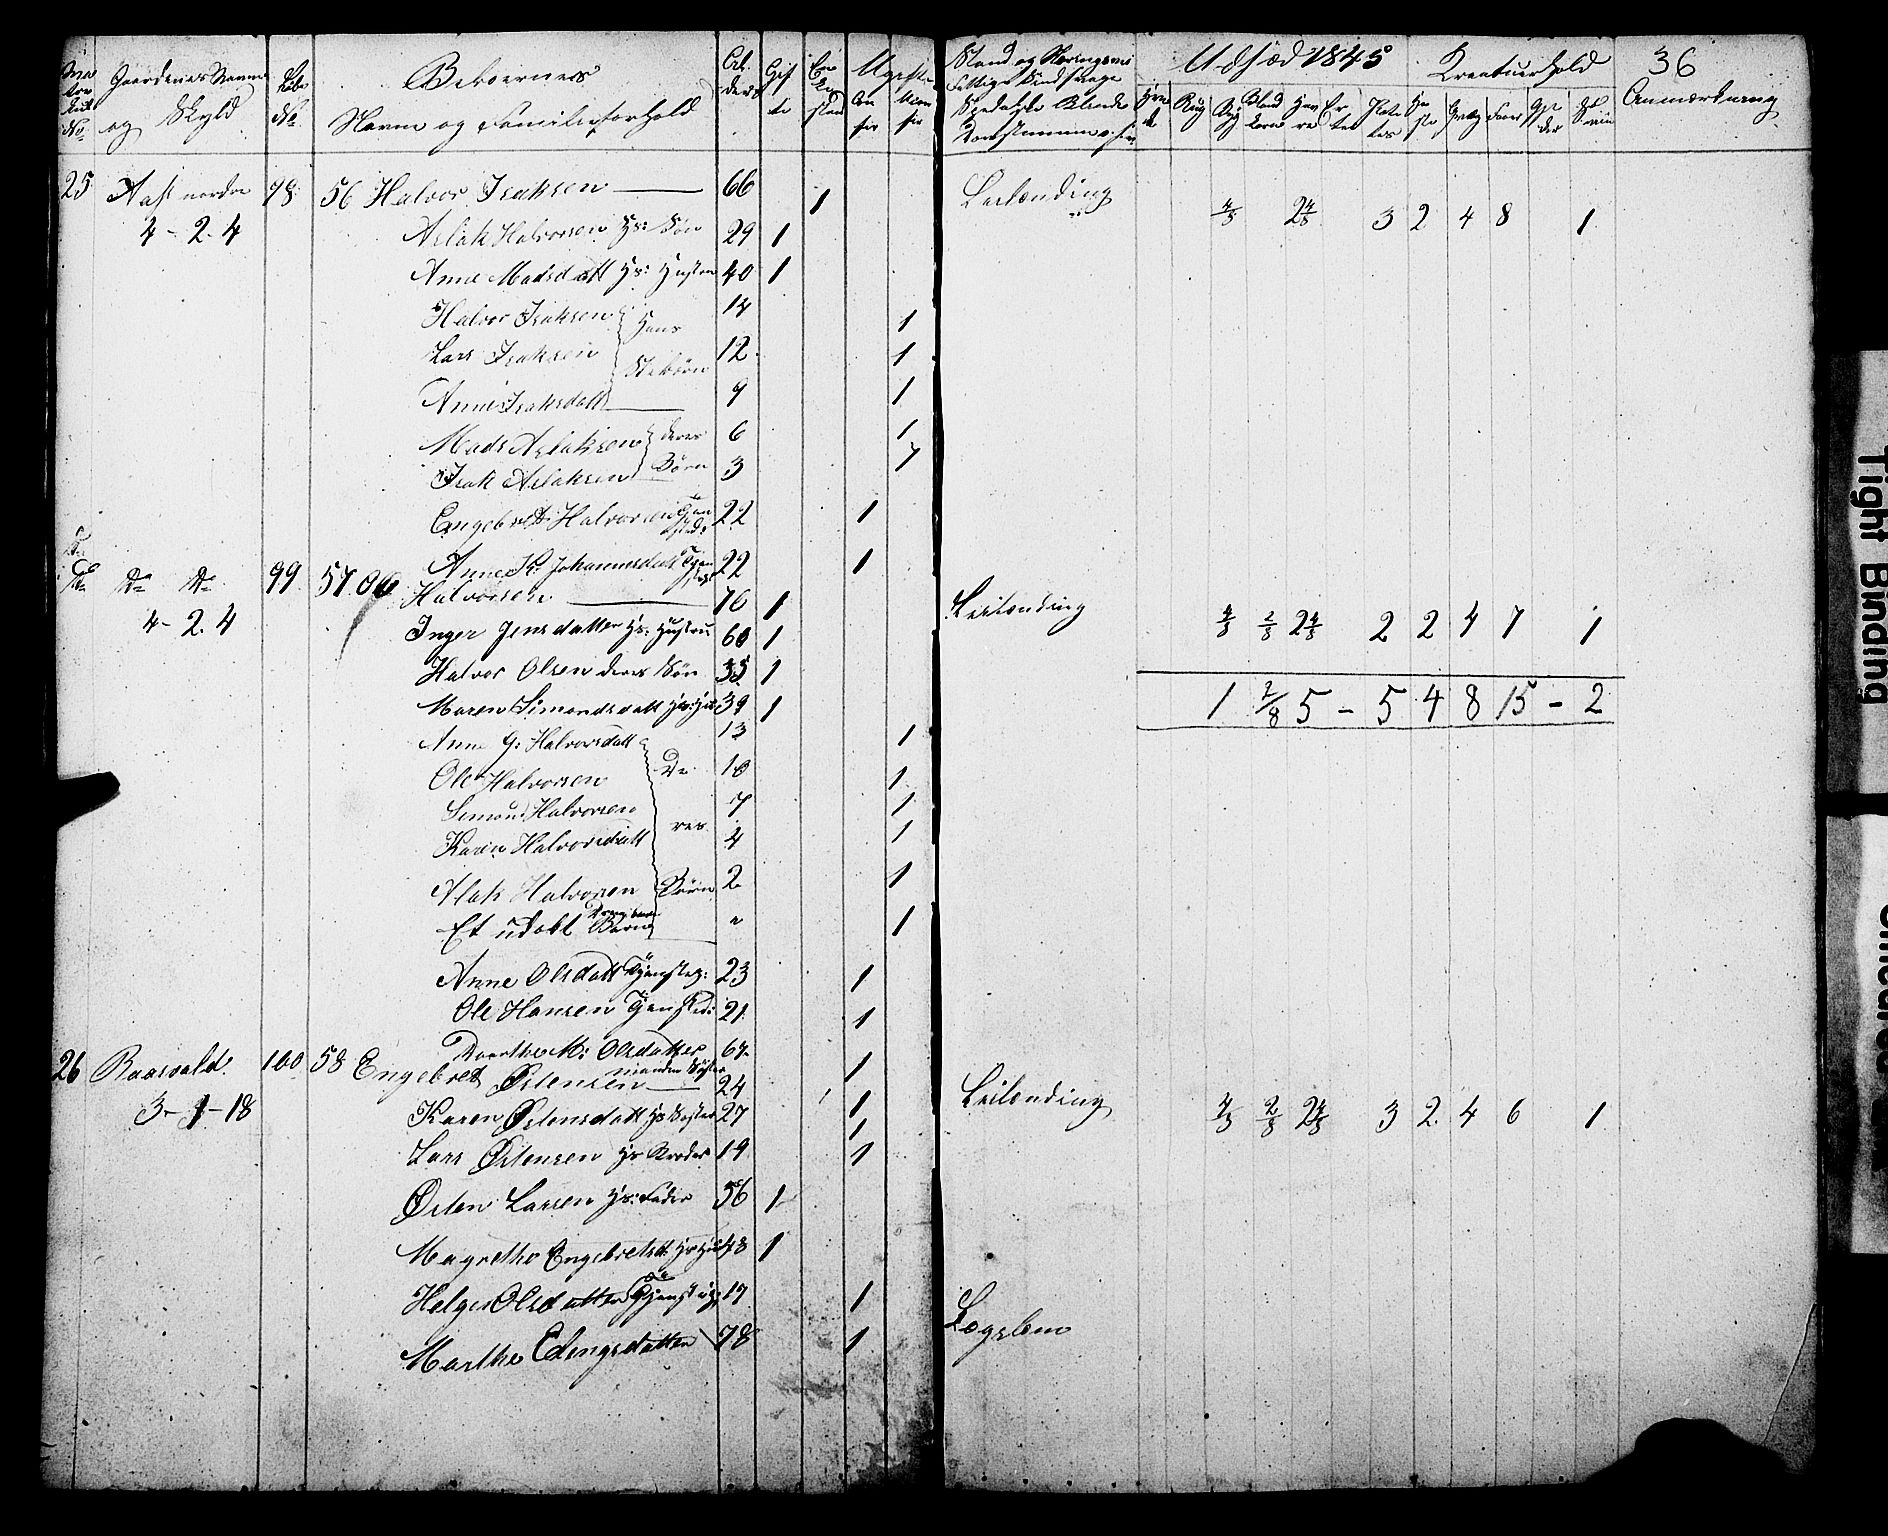 Gaardenes Navne og Skyld
Beboernes
Navn og Familieforhold
Udsæd 1845 Kreaturhold 36
Anmærkning
25 Aast nordre 98 56 Halvor Isaksen 66 1 Leilænding 4/8 2 4/8 3 2 4 8 1
4-2-4 Aslak Halvorsen Hs: Søn 29 1
Anne Madsdatt Hs: Hustru 40 1
Halvor Isaksen Hans 14 1
Lars Isaksen Stibørn 12 1
Anne Isaksdatt 9 1
Mads Aslaksen deres 6 1
Isak Aslaksen Børn 3 1
Engebret Halvorsen 22 1
Anne K: Johannesdatt 22 1
Do Do 99 57 Ole Halvorsen 76 1 Leilænding 4/8 2/8 2 4/8 2 2 4 7 1
4-2.4 Inger Jensdatter Hs: Hustru 60 1
Halvor Olsen deres Søn 35 1
Maren Simondsdatt Hs: Hu 39 1
1 2/8 5 - 5 4 8 15 - 2
Anne G: Halvorsdatt 13 1
Ole Halvorsen De 10 1
Simon Halvorsen 7 1
Karen Halvorsdatt res 4 1
Aslak Halvorsen Børn 2 1
Et udøbt Drengebarn 1
Anne Olsdatt Tjenstep: 23 1
Ole Hansen Tjensted: 21 1
Dorthe M: Olsdatter 67 1
mandens Søster
26 Raasvald 100 58 Engebret Østensen 24 1 Leilænding 4/8 2/8 2 4/8 3 2 4 6 1
3-1-18 Karen Østensdatt Hs Søster 27 1
Lars Østensen Hs Broder 19 1
Østen Larsen Hs: Fader 56 1
Magrethe Engebretsd: Hs Hu 48 1
Helge Olsdatter Tjenstepig 17 1
Marthe Edengsdatter 78 1 Lægslem
Tight Binding